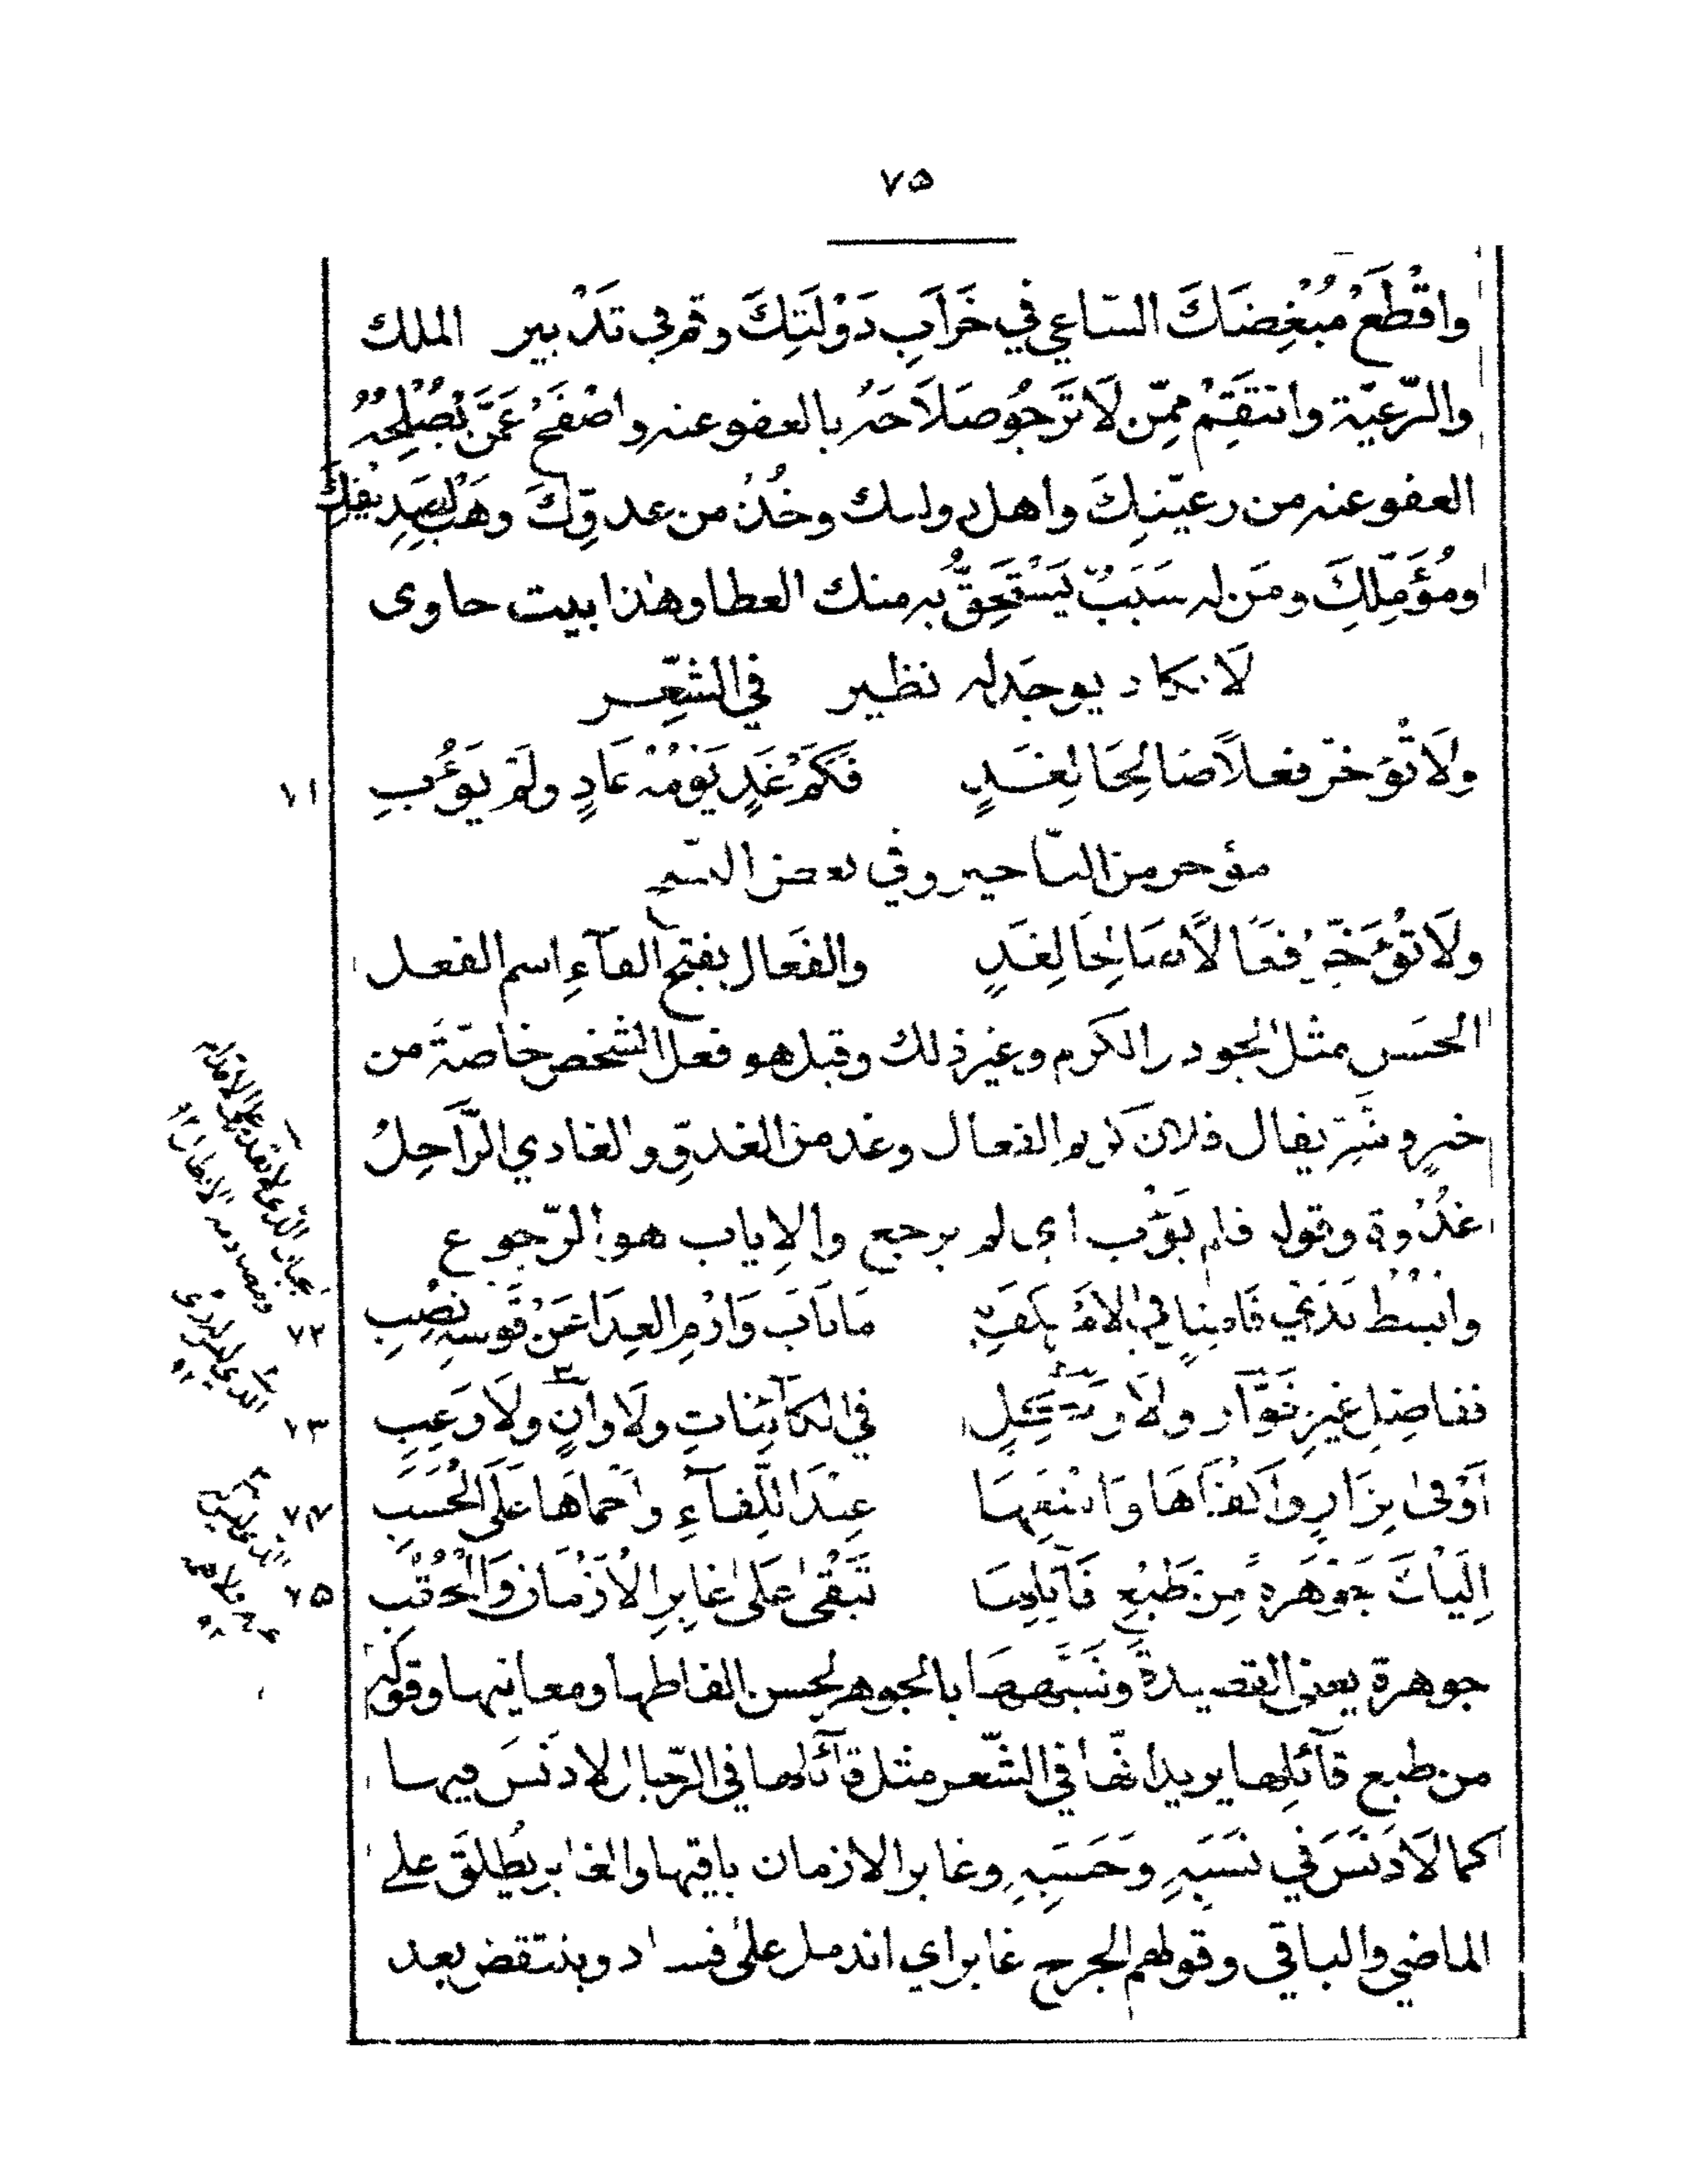 ٧٥
واقْطَعْ مُبْغِضَكَ السّاعي في خَرَابِ دَوْلَتِكَ وقم في تَدْبير الملك
والرّعيّة وانتقِمْ ممّن لَا تَرجُو صَلَاحَهُ بالعفو عنه واصْفَحْ عَمَّنْ يُصْلِحُهُ
العفو عنه من رعيّتِكَ واهل دولتك وخُذْ من عدوِّكَ وهَبْ لِصَدِيقِكَ
ومُؤَمِّلِكَ ومَن له سَبَبٌ يَسْتَحِقُّ به منك العطا وهٰذا بيت حاوى
لَا يكاد يوجَد له نظير في الشِّعر
ولَا تُؤَخّر فعلاً صَالِحًا لِغَدٍ فَكَمْ غَدٍ يَوْمُهُ غَادٍ ولَمْ يَؤُبِ
٧١
مؤخر من التأخير وفي بعض النسخ
ولَا تُؤَخِّرْ فَعَالاً صَالِحًا لِغَدٍ والفَعَال بفتح الفآءِ اسم الفعل
الحسَن مثل الجود والكرم وغير ذلك وقيل هو فعل الشخص خاصّةً من
خيرٍ وشَرٍّ يقال فلان كريم الفعال وغد من الغدوِّ والغادي الرَّاحِلُ
غُدْوة وقوله فلم يَؤُب اي لم يرجع والإياب هو الرّجوع
وابْسُطْ يَدَيْ فَامنِا في الامْ يَكفِ مَا نَابَ وَارْمِ العِدَا عَنْ قَوسِهِ تصِبِ
٧٢
ففاضِلِ غيرِ خَوَّارٍ ولَا وَكِلٍ في الكآئِنَاتِ ولَا وانٍ ولَا وَغِبِ
٧٣
أَوْفىٰ نِزَارٍ وأكْفَاهَا وَامْنعِهَا عِنْدَ اللِّقآءِ وأَحْمَاهَا عَلَى الحَسَبِ
٧٤
إلَيْكَ جَوْهَرةً مِنْ طَبْعِ قَآئِلِهَا تَبْقىٰ عَلىٰ غَابِرِ الْأَزْمَانِ وَالْحُقُبِ
٧٥
جوهرة يعنى القصيدةَ وشَبَّهَهَا بالجوهر لحسن الفاظها ومعانيها وقوله
من طبع قآئلِها يريد انَّها في الشّعر مثل قآئلها في الرّجال لا دَنَسَ فيها
كما لَا دَنَسَ في نَسَبِهِ وَحَسَبِهِ وغابر الازمان باقيها والغابر يُطلَق على
الماضي والباقي وقولهم الجرح غابر اي اندمل علىٰ فساد وينتقض بعد